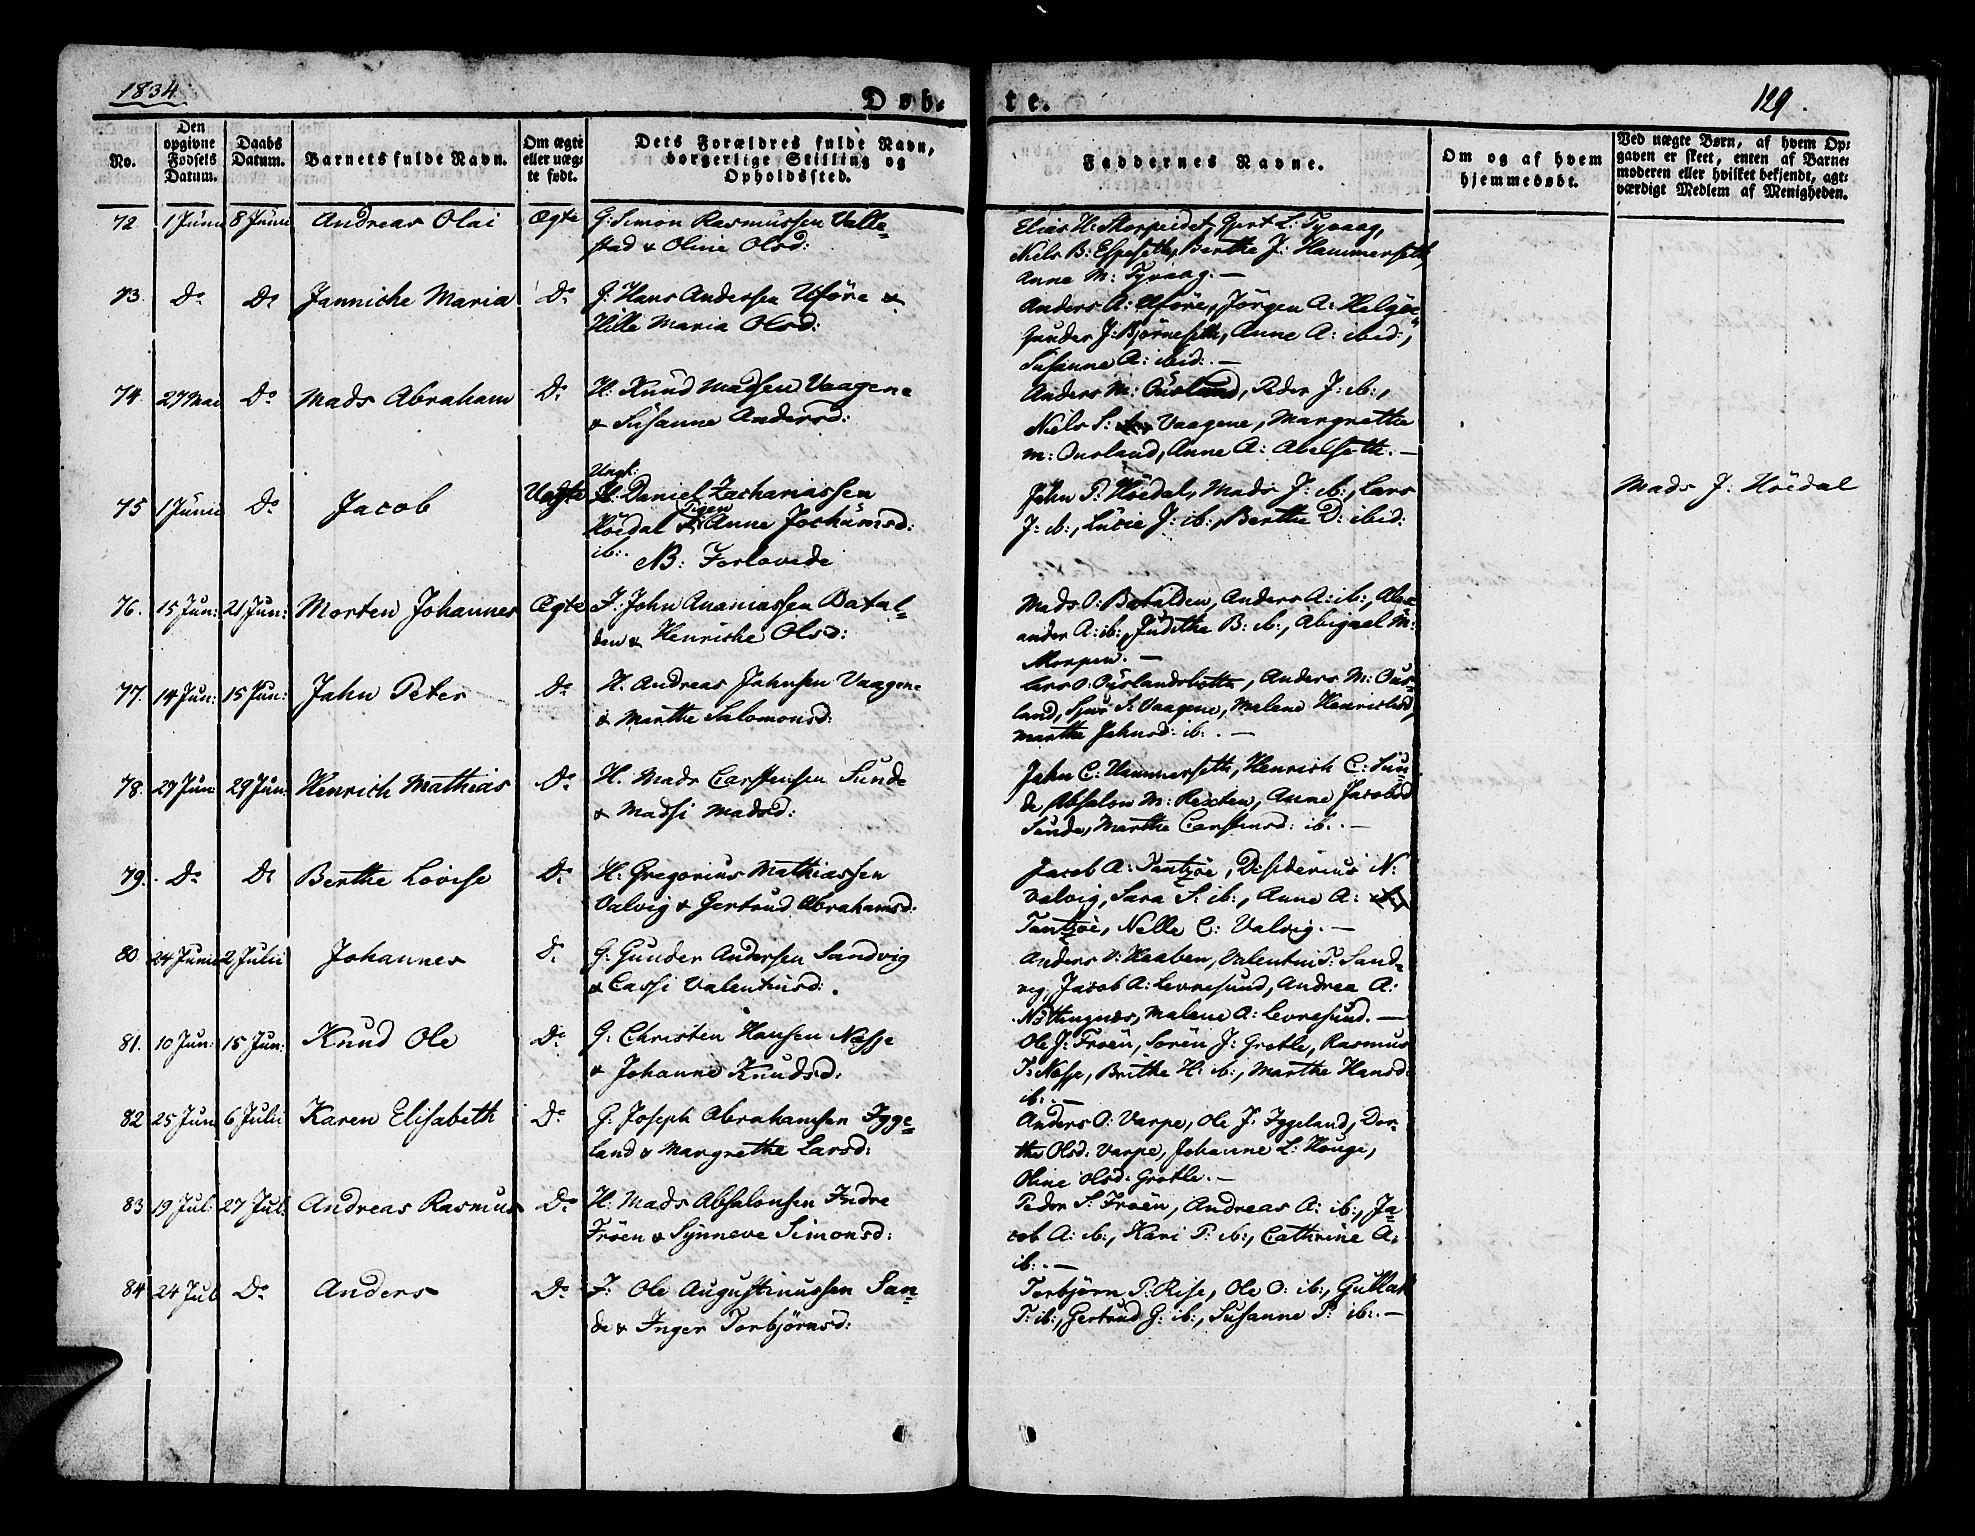 1834.
Døb-
te.
129.
No.
Den opgivne Fødsels Datum.
Daabs Datum.
Barnets fulde Navn.
Om ægte eller uægte født.
Dets Forældres fulde Navn, borgerlige Stilling og Opholdssted.
Faddernes Navne.
Om og af hvem hjemmedøbt.
Ved uægte Børn, af hvem Opgaven er skeet, enten af Barnemoderen eller hvilket bekjendt, agtværdigt Medlem af Menigheden.
72 1 Junii 8 Junii Andreas Olai Ægte G: Simon Rasmussen Valle-
stad & Oline Olsd:
Elias H: Skorpeidet, Gjert L: Tyvaag,
Niels B: Espeseth, Berthe J: Hammerseth,
Anne M: Tyvaag. —
73. Do Do Jannicke Maria Do G: Hans Andersen Uføre &
Hille Maria Olsd:
Anders A: Uføre, Jörgen A: Helgöe,
Gunder J: Bjørneseth, Anne A: ibid:,
Susanne A: ibid: —
74. 27 Mai Do Mads Abraham Do H. Knud Madsen Vaagene
& Susanne Andersd:
Anders M: Ousland, Peder J: ib:,
Niels S: Vaagene, Margrethe
M: Ousland, Anne A: Abelseth. —
75 1 Junii Do Jacob Uægte Ungk:
Daniel Zachariassen
Höedal & Pigen Anne Jochumsd:
ib:. NB: Forlovede
John P: Höedal, Mads J: ib:, Lars
J: ib:, Lucie J: ib:, Berthe D: ibid:
Mads J. Höedal
76. 15 Jun: 21 Jun: Morten Johannes Ægte J: John Ananiassen Batal-
den & Henriche Olsd:
Mads O: Batalden, Anders A: ib:, Alex
ander A: ib:, Judithe B: ib:, Abigael M:
Skorpen. —
77. 14 Jun: 15 Jun: Jahn Peter Do H. Andreas Jahnsen Vaagene
& Marthe Salomonsd:
Lars O: Ouslandsbotten, Anders M: Ous-
land, Sjur S: Vaagene, Malene Henrichsd,
Marthe Jahnsd: ib:. —
78. 27 Jun: 29 Jun: Henrich Mathias Do H. Mads Carstensen Sunde
& Madsi Madsd:
Jahn C: Hammerseth, Henrich C: Sun-
de, Absalon M: Rexten, Anne Jacobsd
Sunde, Marthe Carstensd: ib:. —
79. Do Do Berthe Lovise Do H: Gregorius Mathiassen
Valvig & Gertrud Abrahamsd:
Jacob A: Tantzöe, Desiderius N:
Valvig, Sara S: ib:, Anne A:
Tantzöe, Nelle C: Valvig. —
80. 24 Junii 2 Julii Johannes Do G: Gunder Andersen Sandvig
& Cassi Valentinsd:.
Anders V: Haaben, Valentin P: Sand-
vig, Jacob A: Levresund, Andrea A:
Nöttingnæs, Malene A: Levresund. —
81. 10 Jun: 15 Jun: Knud Ole Do G: Christen Hansen Nasse
& Johanne Knudsd:
Ole J: Fröen, Sören J: Grotle, Rasmus
T: Nasse, Brithe H: ib:, Marthe Hansd:
ib:. —
82 25 Jun 6 Julii Karen Elisabeth Do G: Joseph Abrahamsen Igge-
land & Margrethe Larsd:
Anders O: Varpe, Ole J: Iggeland, Dor-
the Olsd: Varpe, Johanne L: Houge,
Oline Olsd: Grotle. —
83 19 Jul: 27 Jul: Andreas Rasmus Do H. Mads Absalonsen Indre
Fröen & Synneve Simonsd:
Peder S: Fröen, Andreas A: ib:, Ja-
cob A: ib:, Kari P: ib:, Cathrine A:
ib:. —
84 24 Jul Do Anders Do F: Ole Augustinussen San-
de & Inger Torbjörnsd:
Torbjörn P: Rise, Ole O: ib:, Gullak
T: ib:, Gertrud G: ib:, Susanne P: ib:. —